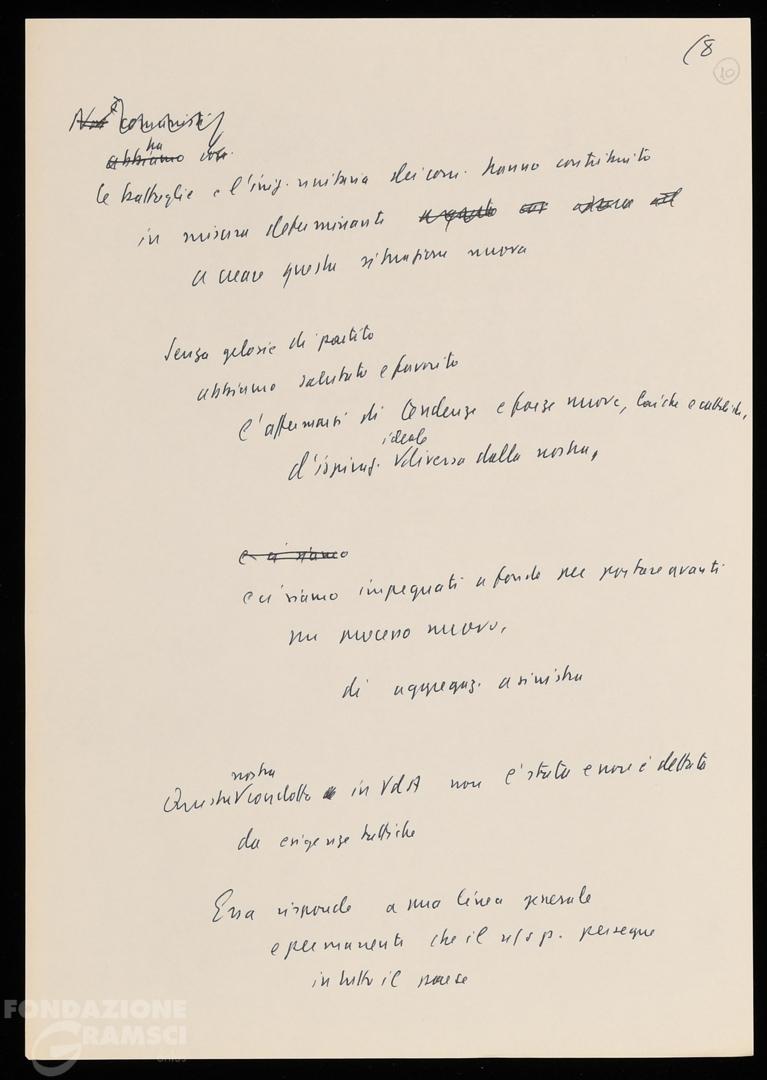 (8
10
Noi comunisti
abbiamo
ha
le battaglie e l'iniz. unitaria dei com. hanno contribuito
in misura determinante
a creare questa situazione nuova
senza gelosie di partito
abbiamo salutato e favorito
l'affermarsi di tendenze e forze nuove, laiche e cattoliche,
d'ispiraz. ideale diversa dalla nostra,
e ci siamo
e ci siamo impegnati a fondo per portare avanti
un processo nuovo,
di aggregaz. a sinistra
Questa nostra condotta in VdA non è stata e non è dettata
da esigenze tattiche
Essa risponde a una linea generale
e permanente che il n/s p. persegue
in tutto il paese
FONDAZIONE
GRAMSCI
onlus